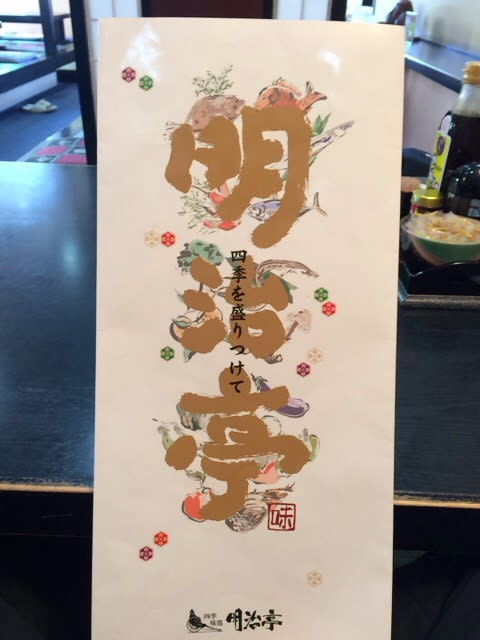 明治亭
四季を盛りつけて
味
四季
味処
明治亭